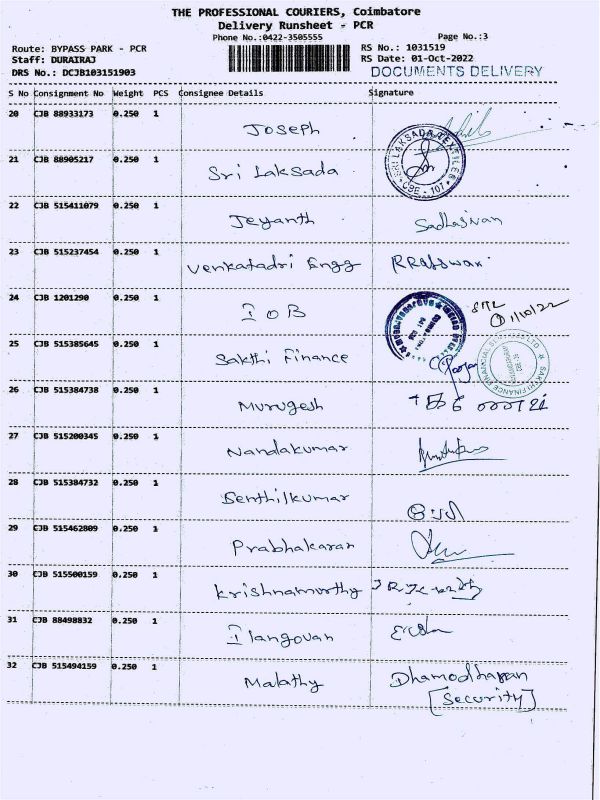 THE PROFESSIONAL COURIERS, Coimbatore
Delivery Runsheet - PCR
Phone No.:0422-3505555 Page No.:3
Route: BYPASS PARK - PCR RS No.: 1031519
Staff: DURAIRAJ RS Date: 01-Oct-2022
DRS No.: DCJB103151903 DOCUMENTS DELIVERY
S No Consignment No Weight PCS Consignee Details Signature
20 CJB 88933173 0.250 1
Joseph
21 CJB 88905217 0.250 1
Sri Laksada SRI LAKSADA TEXTILES CBE - 107
22 CJB 515411079 0.250 1
Jeyanth Sadhasivan
23 CJB 515237454 0.250 1
Venkatadri Engg
24 CJB 1201290 0.250 1
IOB 1/10/22
25 CJB 515385645 0.250 1
Sakthi Finance SAKTHI FINANCE FINANCIAL SERVICES LTD
26 CJB 515384738 0.250 1
Murugesh
27 CJB 515200345 0.250 1
Nandakumar
28 CJB 515384732 0.250 1
Senthilkumar
29 CJB 515462809 0.250 1
Prabhakaran
30 CJB 515500159 0.250 1
Krishnamurthy
31 CJB 88498832 0.250 1
Ilangovan
32 CJB 515494159 0.250 1
Malathy Dhamodharan
[Security]